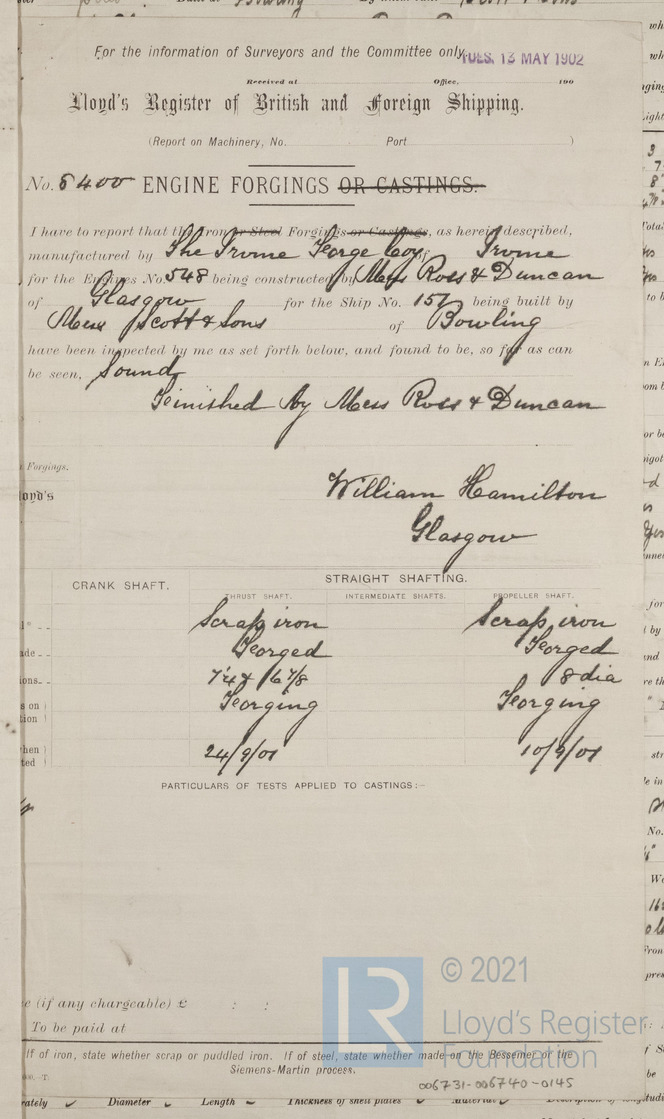 For the information of Surveyors and the Committee only.
TUES. 13 MAY 1902
Received at Office, 190
Lloyd's Register of British and Foreign Shipping.
(Report on Machinery, No. Port )
No. 6400 ENGINE FORGINGS OR CASTINGS.
I have to report that the Iron or Steel Forgings or Castings, as herein described,
manufactured by The Irvine Forge Coy of Irvine
for the Engines No. 548 being constructed by Mess Ross & Duncan
of Glasgow for the Ship No. 157 being built by
Mess Scott & Sons of Bowling
have been inspected by me as set forth below, and found to be, so far as can
be seen, Sound
Finished by Mess Ross & Duncan
Forgings.
loyd's
William Hamilton
Glasgow
CRANK SHAFT. STRAIGHT SHAFTING.
THRUST SHAFT. INTERMEDIATE SHAFTS. PROPELLER SHAFT.
Scrap iron Scrap iron
Forged Forged
8 dia
Forging Forging
24/9/01 10/9/01
PARTICULARS OF TESTS APPLIED TO CASTINGS:-
e (if any chargeable) £ : :
To be paid at
If of iron, state whether scrap or puddled iron. If of steel, state whether made on the Bessemer or the
Siemens-Martin process.
006731-006740-0145
Diameter Length Thickness of shell plates Material
LR
© 2021
Lloyd's Register
Foundation